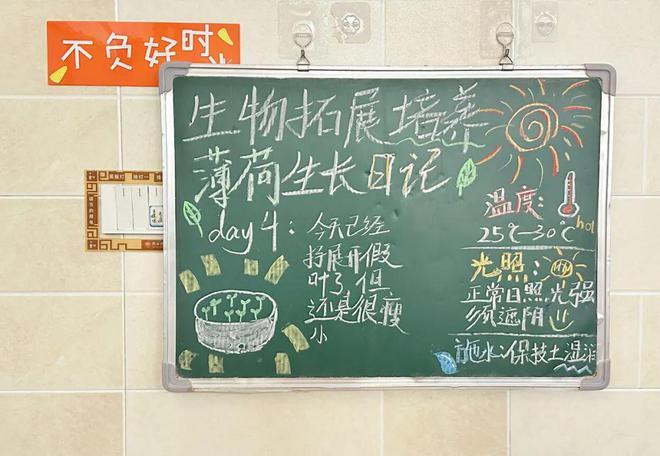 不负好时
生物拓展培养
薄荷生长日记
day 4:
今天已经
持展开假
叶了,但
还是很瘦
小
温度:
25℃-30℃
hot
光照:
正常日照,光强
须遮阴
施水:保技土湿润